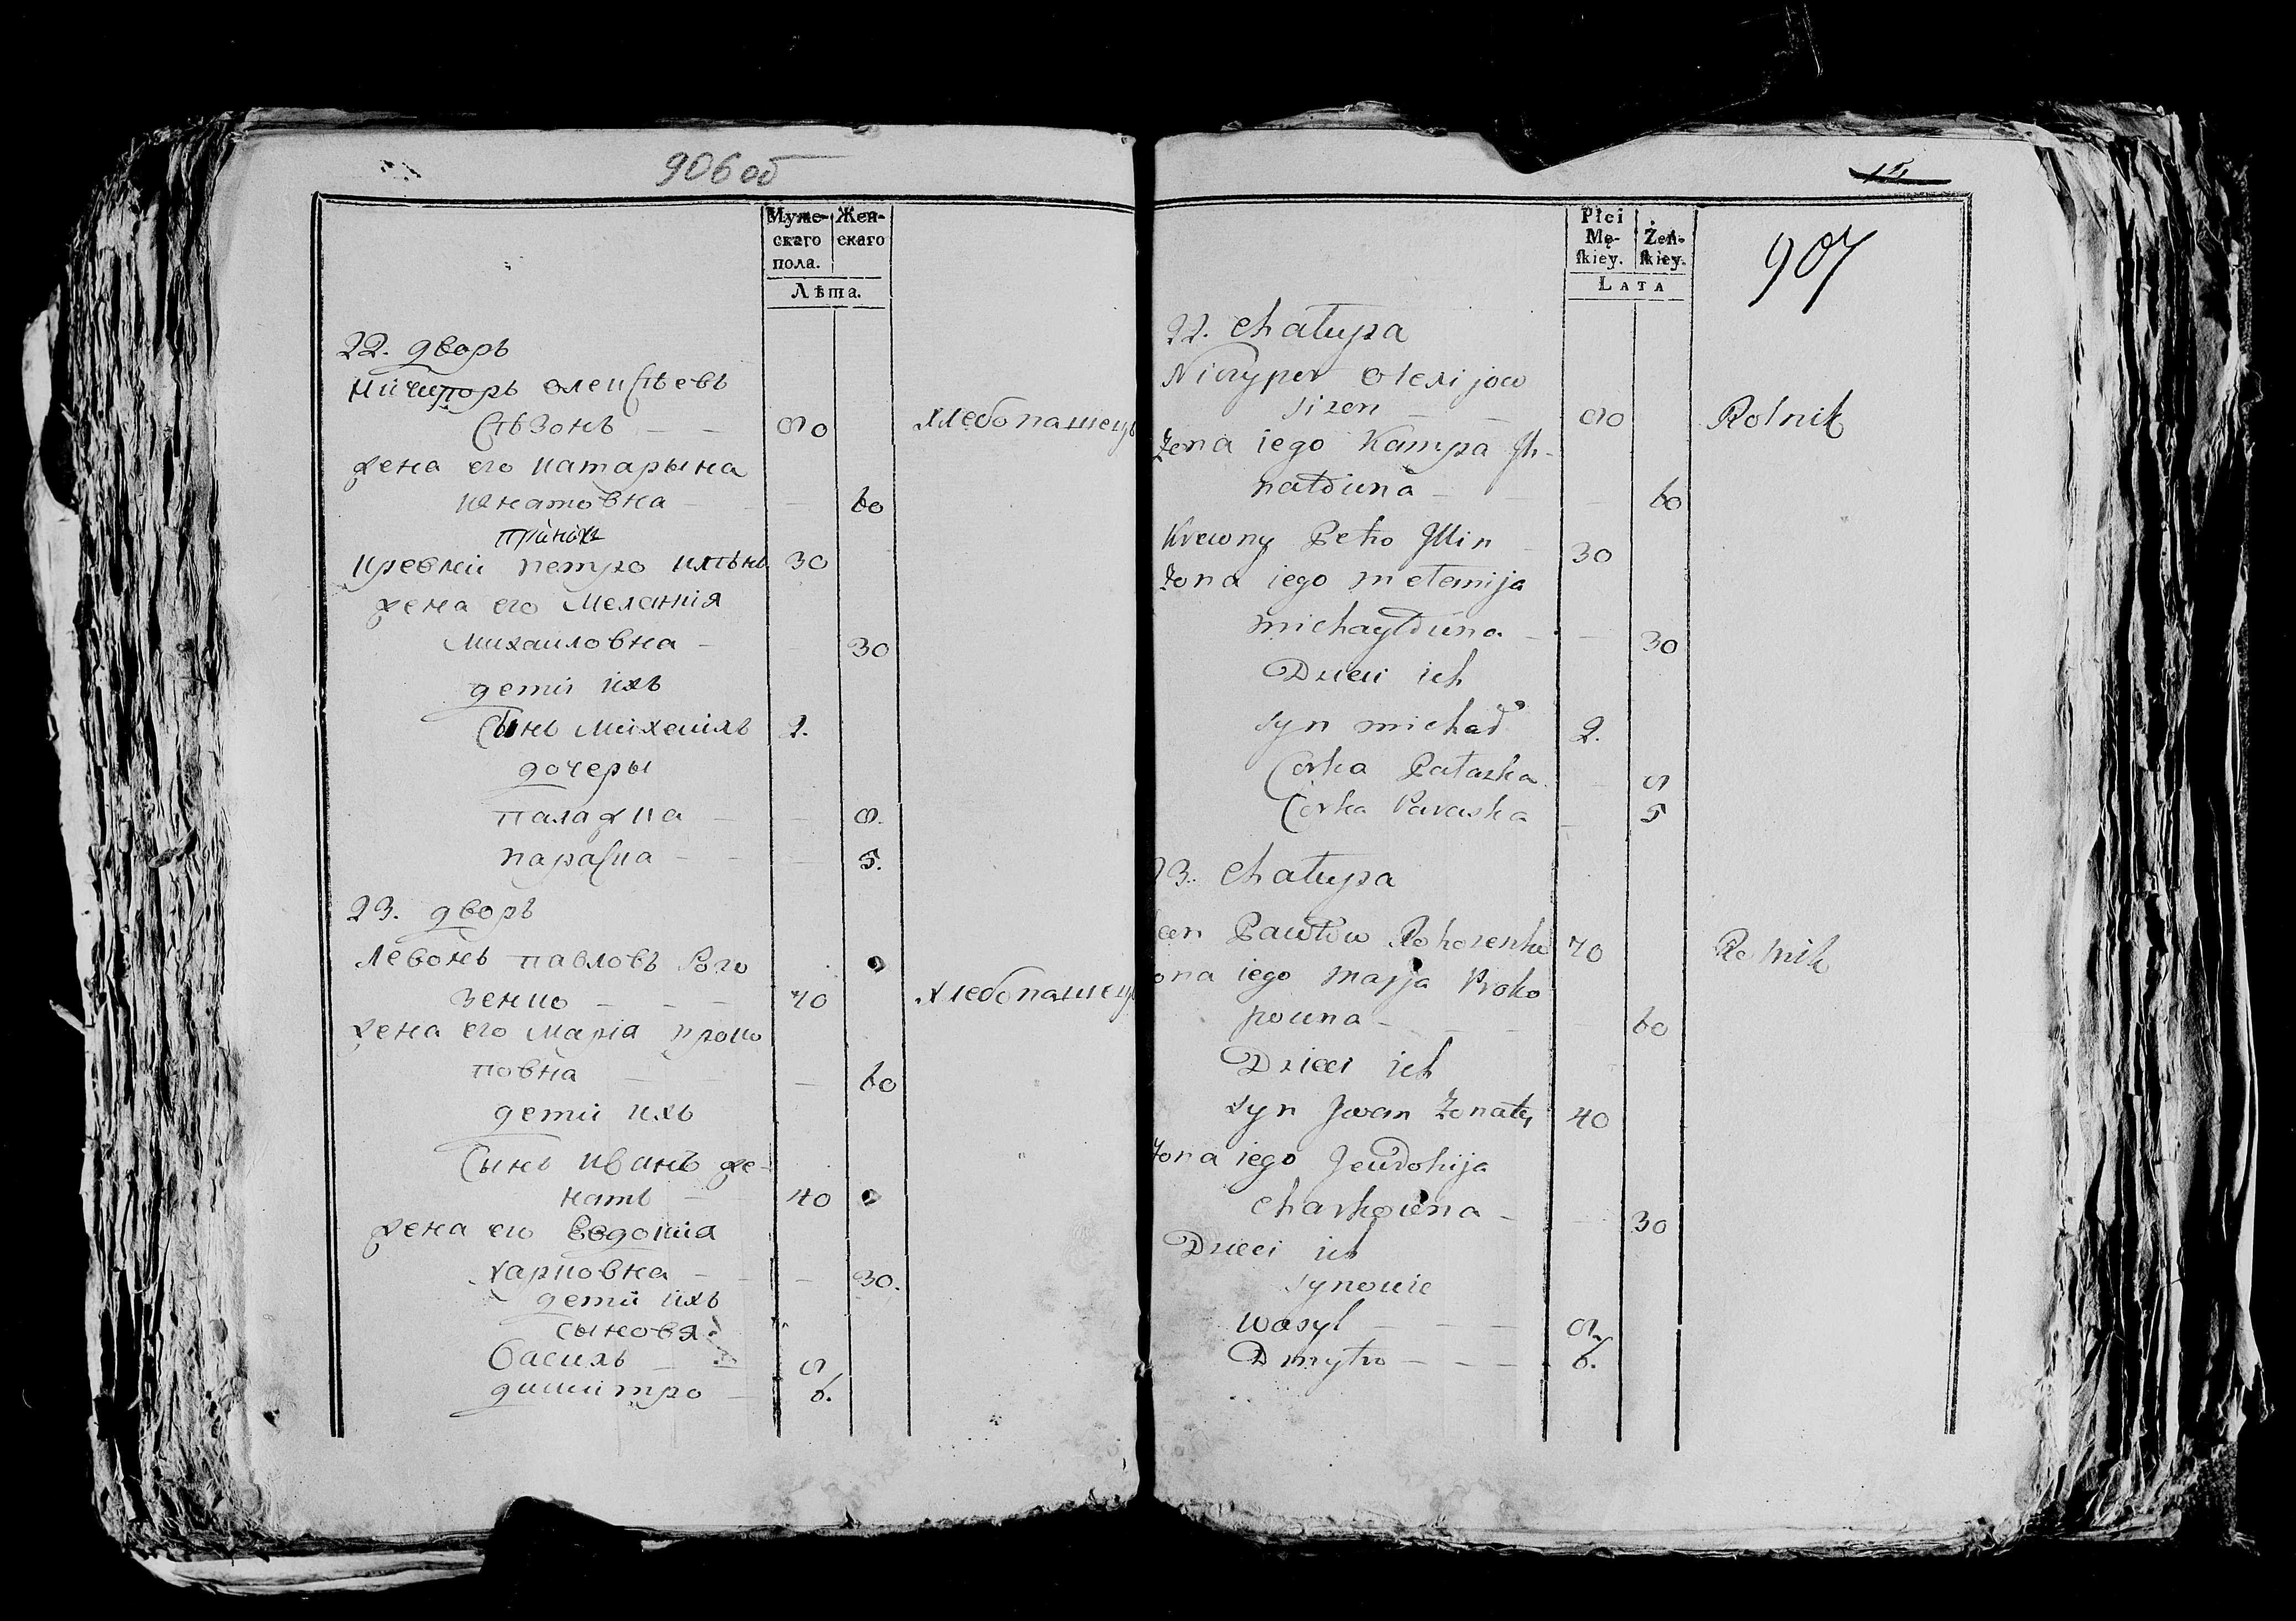 906 об
Муже- Жен-
скаго скаго
пола.
Лѣта.
22. дворъ
Ничипоръ Олексѣевъ
Сѣзонъ — — 90 хлебопашецъ
жена его Катарына
Игнатовна — — 60
Кревній Петро Ильинъ 30
жена его Меланія
Михаиловна — — 30
дети ихъ
Сынъ Михаилъ 2.
дочеры
Палажка — — 9.
Параска — — 5.
23. дворъ
Левонъ Павловъ Рого
зенко — — — 70 хлебопашецъ
жена его Марія Проко
повна — — 60
дети ихъ
Сынъ Иванъ же-
натъ — 40
жена его Евдокія
Харковна — — 30.
дети ихъ
сыновя
Василь — 9
Димитро — 6.
Płci
Mę- Żeń-
skiey. skiey.
LATA
907
22. Chałupa
Niczyper Olexijow
Sizon — — 90 Rolnik
Żona iego
natówna — — — 60
Krewny Petro Illin — 30
Żona iego Mełanija
Michayłówna — — 30
Dzieci ich
Syn Michał 2.
Corka Pałaszka — 9
Corka Paraska — 5
23. Chałupa
Pawłow Rohozenko 70 Rolnik
ona iego Marja Proko
powna — — — — 60
Dzieci ich
Syn Jwan Żonaty 40
Żona iego Jewdokija
Charkowna — — 30
Dzieci ich
Synowie
Wasyl — — — 9.
Dmytro — — — 6.